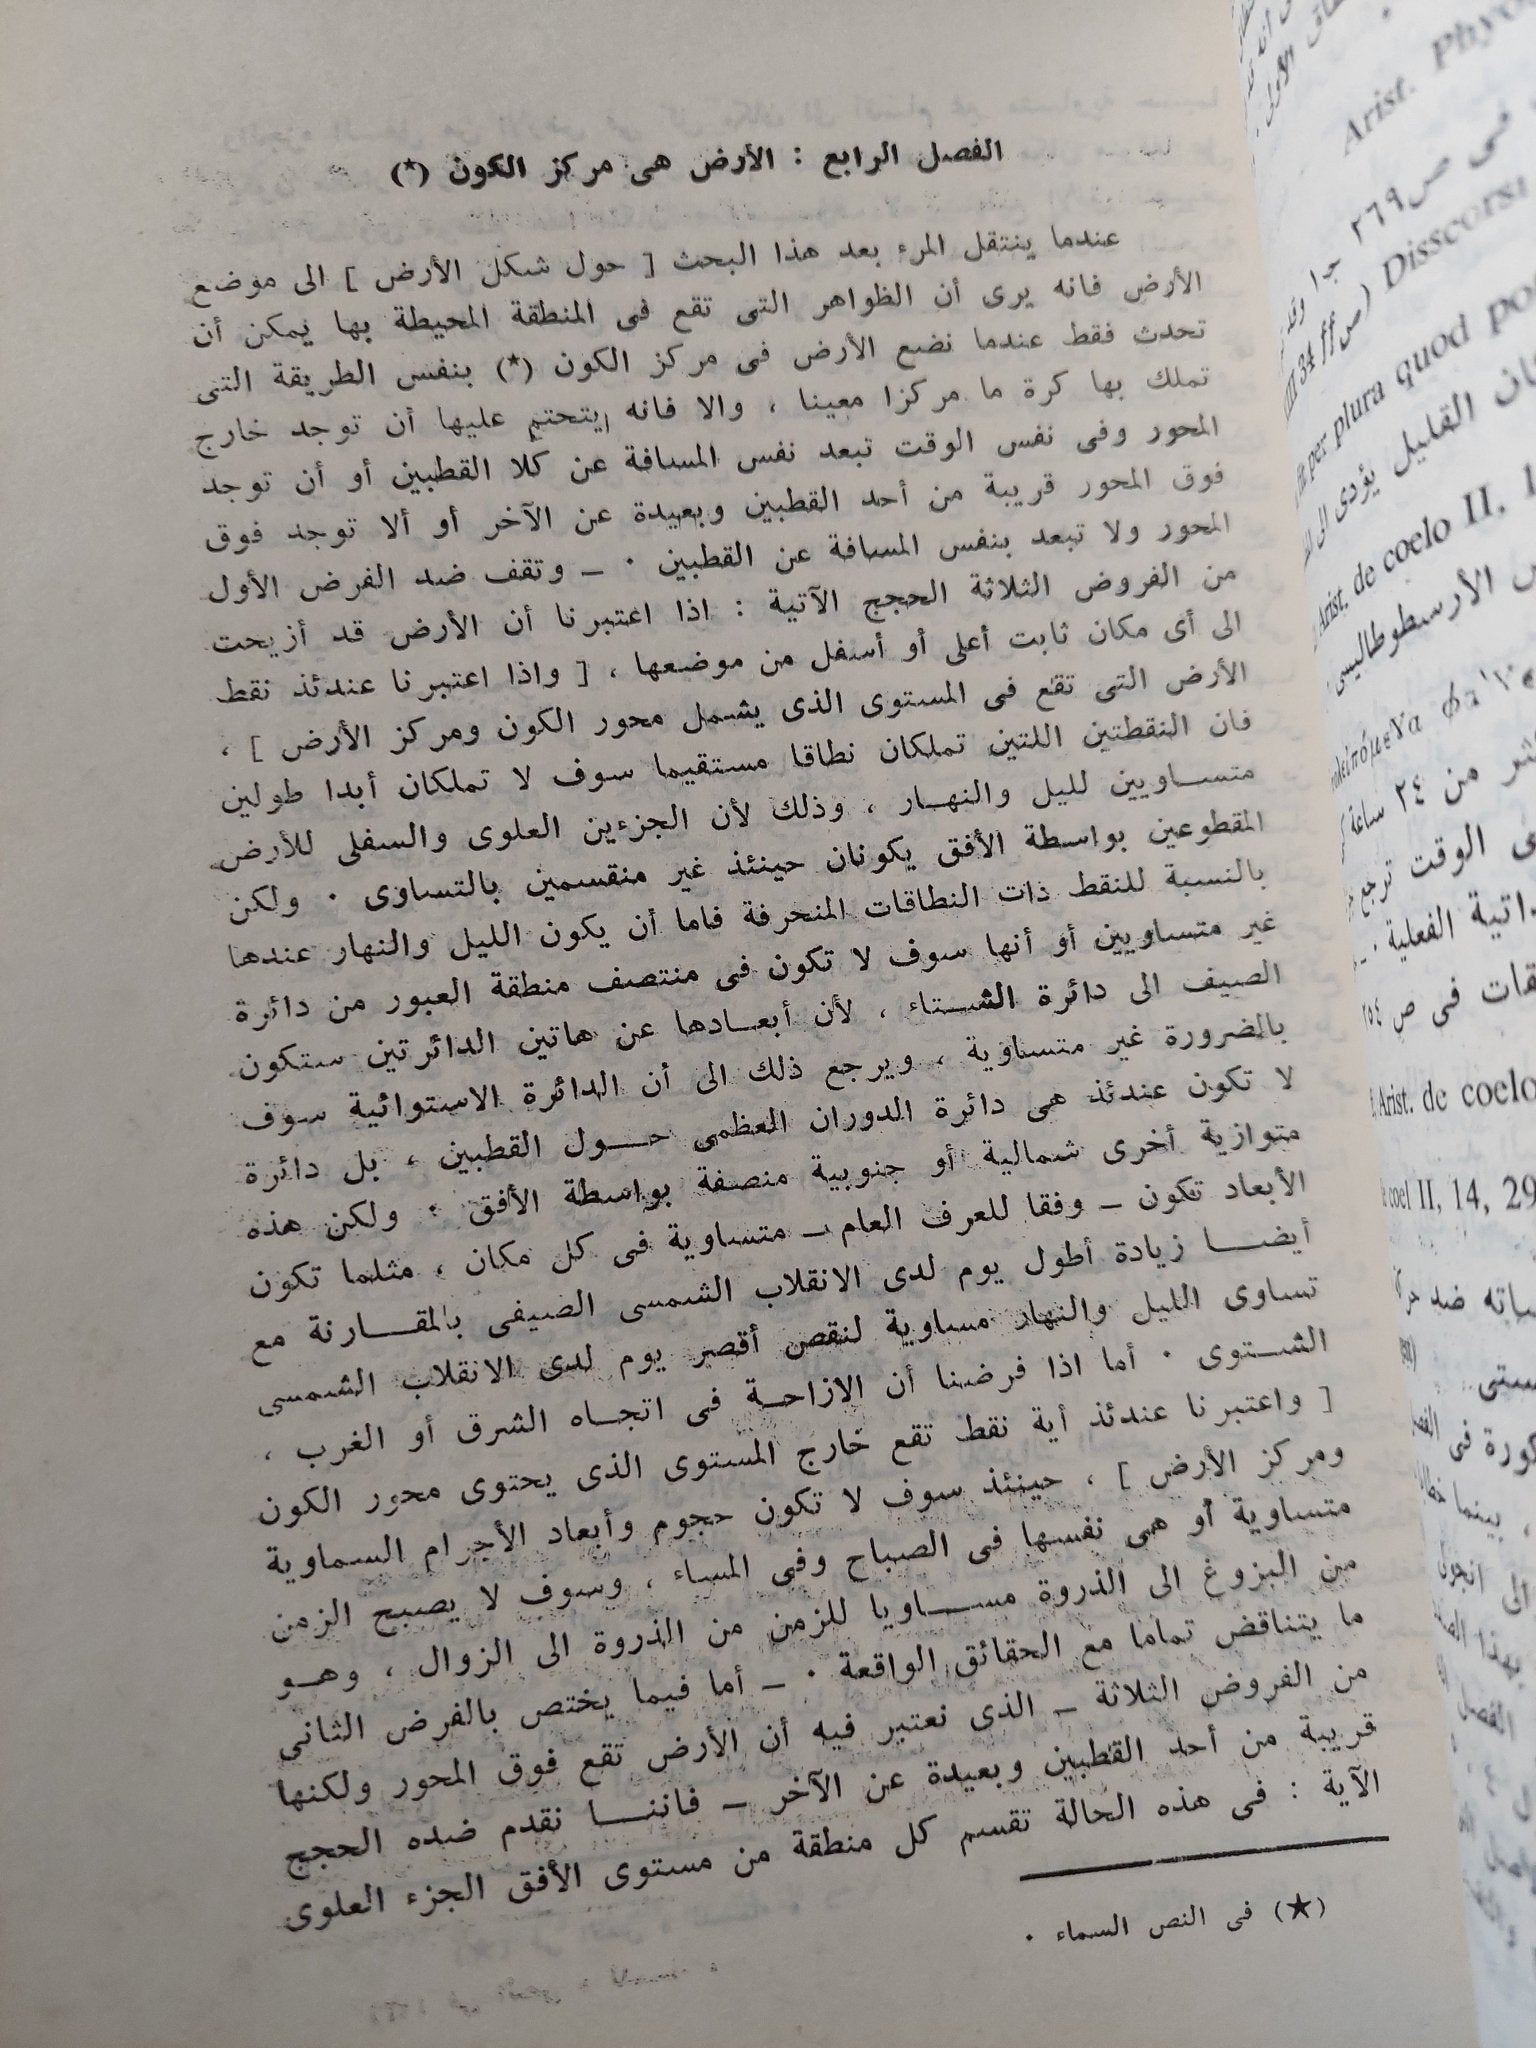 الفصل الرابع : الأرض هى مركز الكون (*)
عندما ينتقل المرء بعد هذا البحث [ حول شكل الأرض ] الى موضع
الأرض فانه يرى أن الظواهر التى تقع فى المنطقة المحيطة بها يمكن أن
تحدث فقط عندما نضع الأرض فى مركز الكون (*) بنفس الطريقة التى
تملك بها كرة ما مركزا معينا ، والا فانه يتحتم عليها أن توجد خارج
المحور وفى نفس الوقت تبعد نفس المسافة عن كلا القطبين أو أن توجد
فوق المحور قريبة من أحد القطبين وبعيدة عن الآخر أو ألا توجد فوق
المحور ولا تبعد بنفس المسافة عن القطبين ٠ ــ وتقف ضد الفرض الأول
من الفروض الثلاثة الحجج الآتية : اذا اعتبرنا أن الأرض قد أزيحت
الى أى مكان ثابت أعلى أو أسفل من موضعها ، [ واذا اعتبرنا عندئذ نقط
الأرض التى تقع فى المستوى الذى يشمل محور الكون ومركز الأرض ] ،
فان النقطتين اللتين تملكان نطاقا مستقيما سوف لا تملكان أبدا طولين
متساويين لليل والنهار ، وذلك لأن الجزءين العلوى والسفلى للأرض
المقطوعين بواسطة الأفق يكونان حينئذ غير منقسمين بالتساوى ٠ ولكن
بالنسبة للنقط ذات النطاقات المنحرفة فاما أن يكون الليل والنهار عندها
غير متساويين أو أنها سوف لا تكون فى منتصف منطقة العبور من دائرة
الصيف الى دائرة الشتاء ، لأن أبعادها عن هاتين الدائرتين ستكون
بالضرورة غير متساوية ، ويرجع ذلك الى أن الدائرة الاستوائية سوف
لا تكون عندئذ هى دائرة الدوران العظمى حول القطبين ، بل دائرة
متوازية أخرى شمالية أو جنوبية منصفة بواسطة الأفق ٠ ولكن هذه
الأبعاد تكون ــ وفقا للعرف العام ــ متساوية فى كل مكان ، مثلما تكون
أيضا زيادة أطول يوم لدى الانقلاب الشمسى الصيفى بالمقارنة مع
تساوى الليل والنهار مساوية لنقص أقصر يوم لدى الانقلاب الشمسى
الشتوى ٠ أما اذا فرضنا أن الازاحة فى اتجاه الشرق أو الغرب ،
[ واعتبرنا عندئذ أية نقط تقع خارج المستوى الذى يحتوى محور الكون
ومركز الأرض ] ، حينئذ سوف لا تكون حجوم وأبعاد الأجرام السماوية
متساوية أو هى نفسها فى الصباح وفى المساء ، وسوف لا يصبح الزمن
من البزوغ الى الذروة مساويا للزمن من الذروة الى الزوال ، وهو
ما يتناقض تماما مع الحقائق الواقعة ٠ ــ أما فيما يختص بالفرض الثانى
من الفروض الثلاثة ــ الذى نعتبر فيه أن الأرض تقع فوق المحور ولكنها
قريبة من أحد القطبين وبعيدة عن الآخر ــ فاننا نقدم ضده الحجج
الآية : فى هذه الحالة تقسم كل منطقة من مستوى الأفق الجزء العلوى
(★) فى النص السماء ٠
Arist.
فى ص٢٦٩
Disscorsi
per plura quod
القليل يؤدى الى
Arist. de coelo II. 1
الأرسطوطاليسى
من ٢٤ ساعة
الوقت ترجع
الفعلية
فى ص ٢٥٤
Arist. de coelo
II, 14, 29
ضد
بينما
الى
الفصل